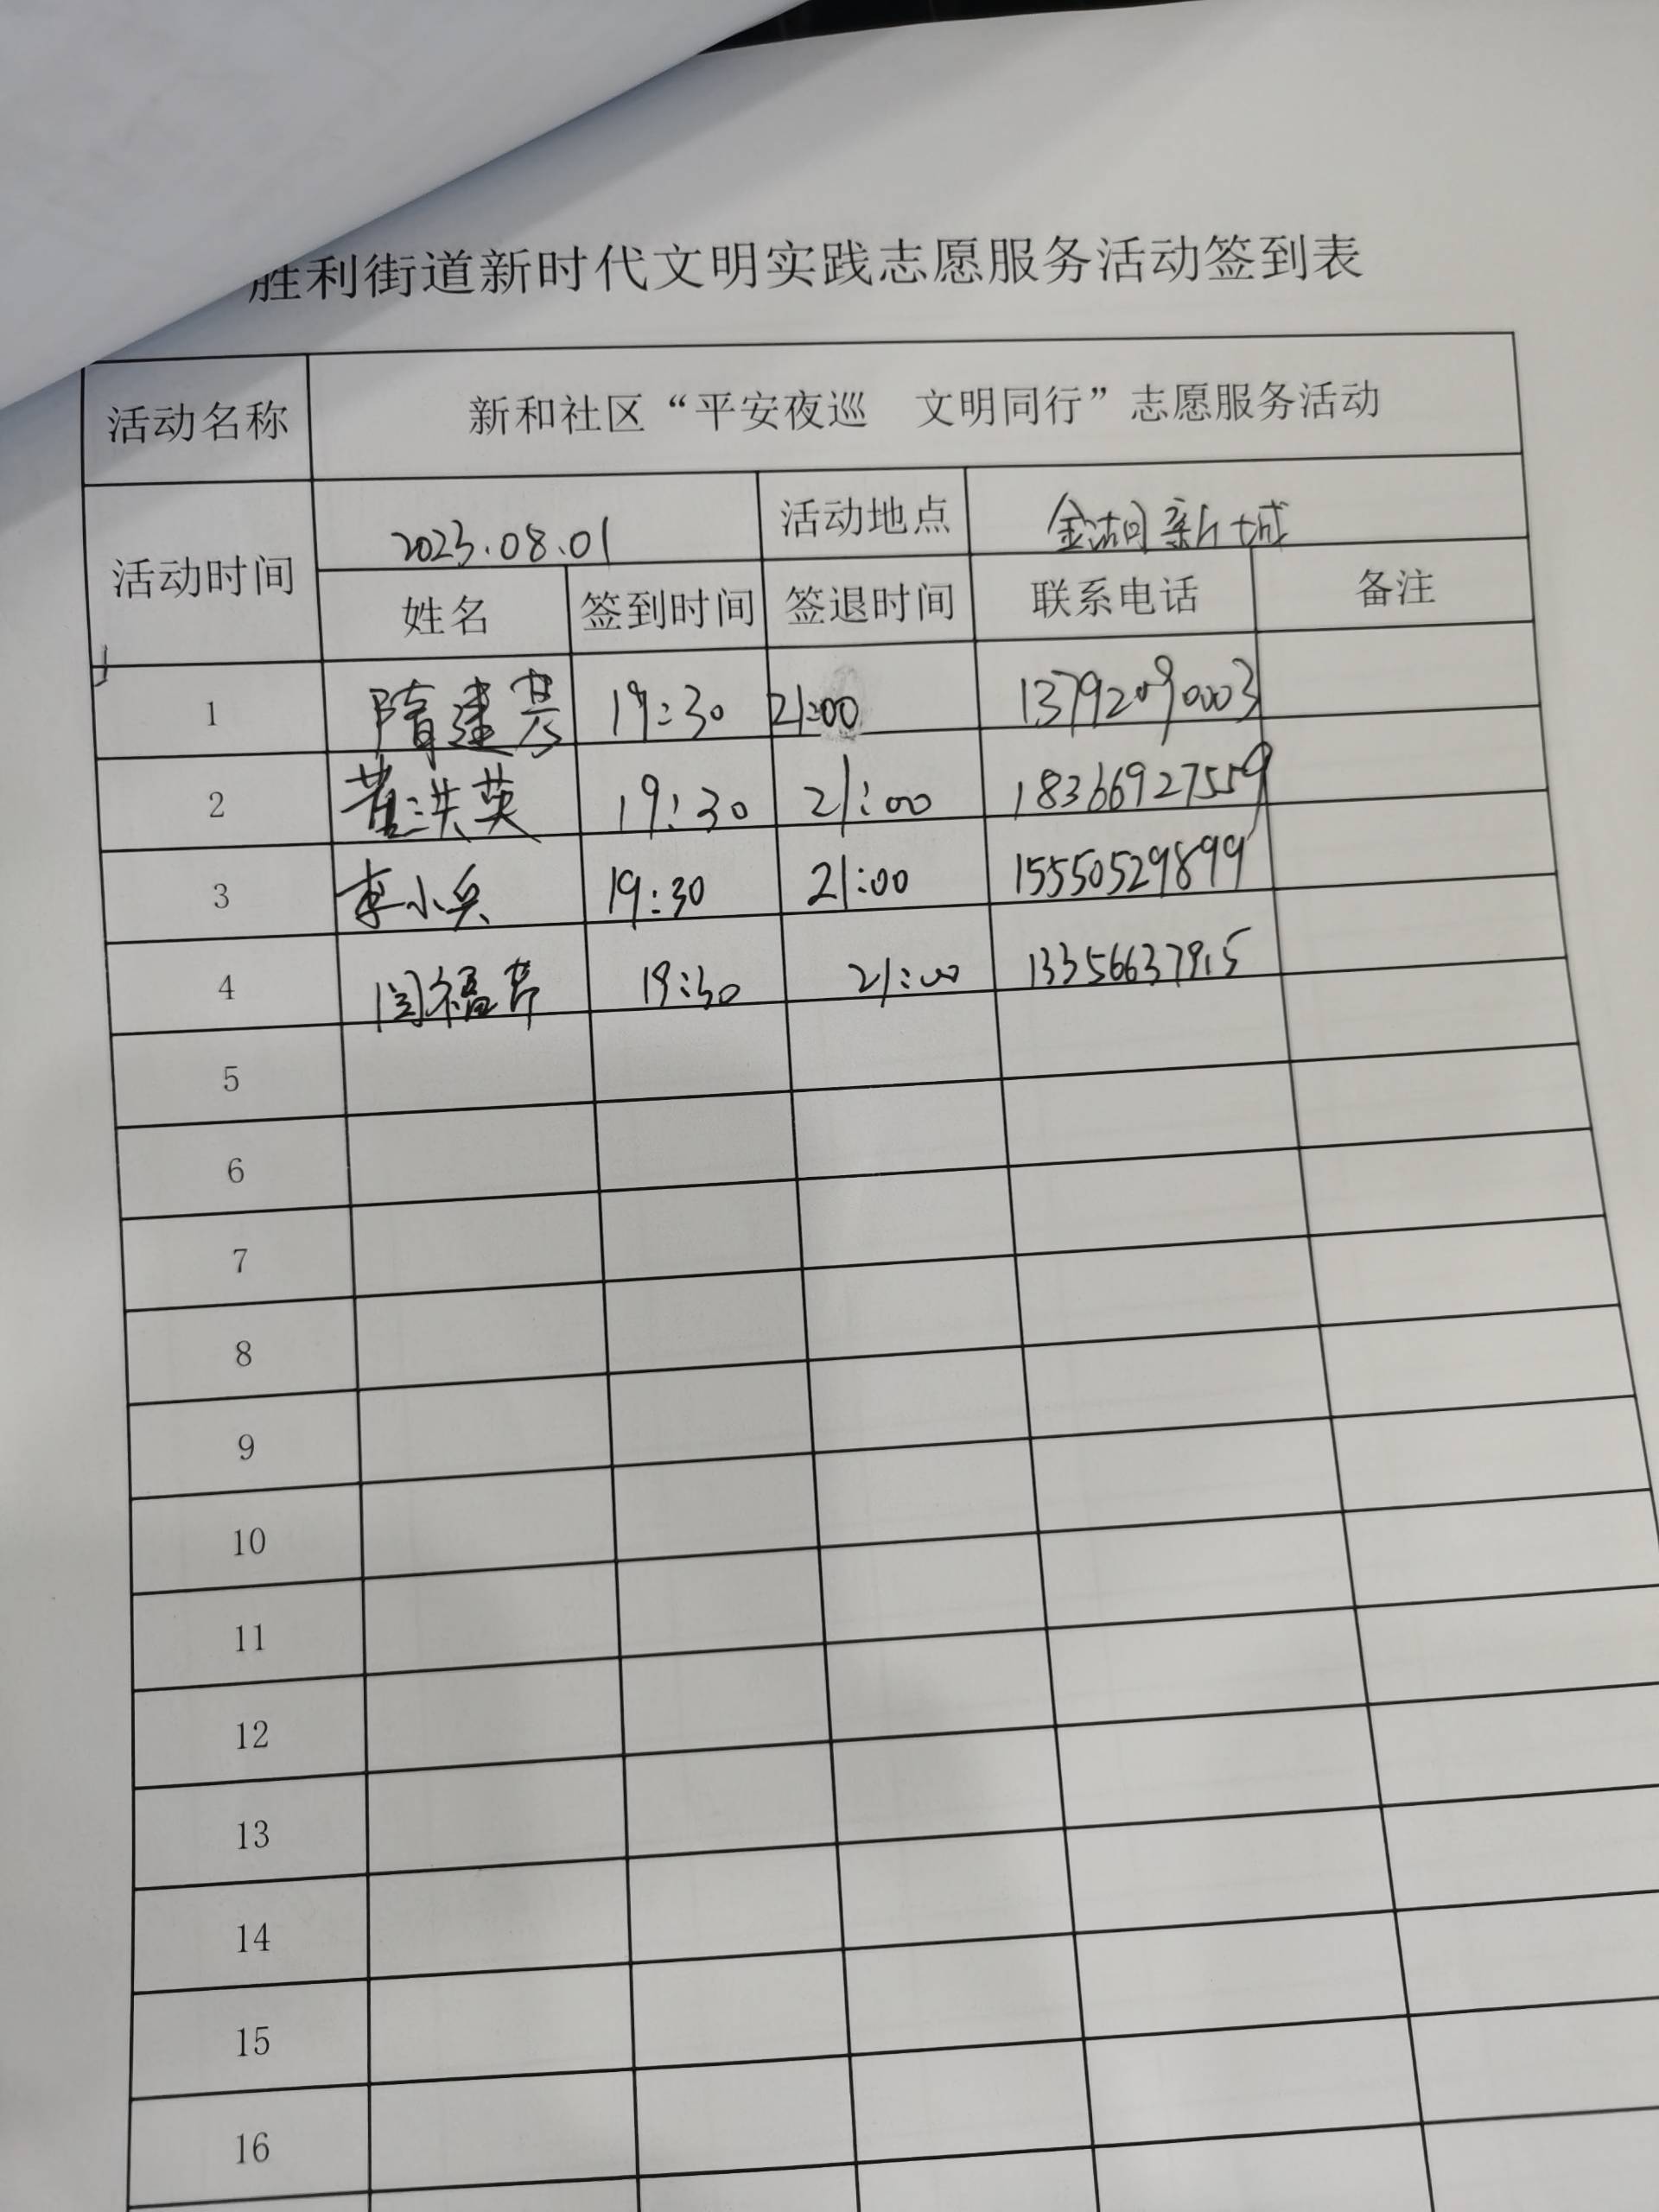 胜利街道新时代文明实践志愿服务活动签到表
活动名称 新和社区“平安夜巡 文明同行”志愿服务活动
活动时间 2023.08.01 活动地点 金湖新城
姓名 签到时间 签退时间 联系电话 备注
1 隋建芸 19:30 21:00 13792090003
2 董洪英 19:30 21:00 18366927559
3 李小兵 19:30 21:00 15550529899
4 闫福芹 19:30 21:00
5
6
7
8
9
10
11
12
13
14
15
16